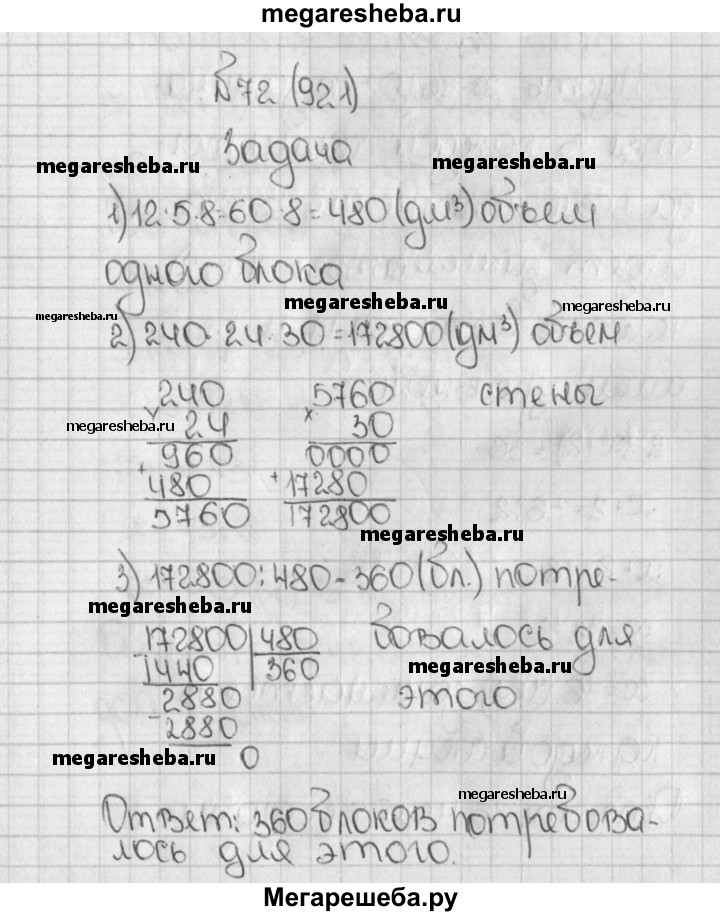 megaresheba.ru
№72 (921)
Задача
megaresheba.ru megaresheba.ru
1) 12·5·8=60·8=480 (дм³) объем
одного блока
megaresheba.ru megaresheba.ru
megaresheba.ru
2) 240·24·30=172800 (дм³) объем
стены
240 5760
megaresheba.ru × 24 × 30
960 0000
+ 480 + 17280
5760 172800
megaresheba.ru
3) 172800:480=360 (бл.) потре-
megaresheba.ru
бовалось для
172800 | 480
- 1440 360 megaresheba.ru
2880 этого
- 2880
megaresheba.ru 0
megaresheba.ru
Ответ: 360 блоков потребова-
лось для этого.
Мегарешеба.ру